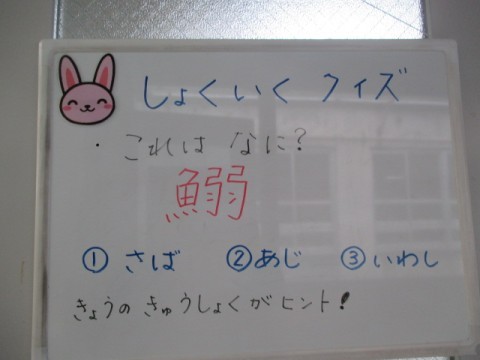 しょくいく クイズ
・これは なに?
鰯
① さば ② あじ ③ いわし
きょうの きゅうしょくが ヒント!